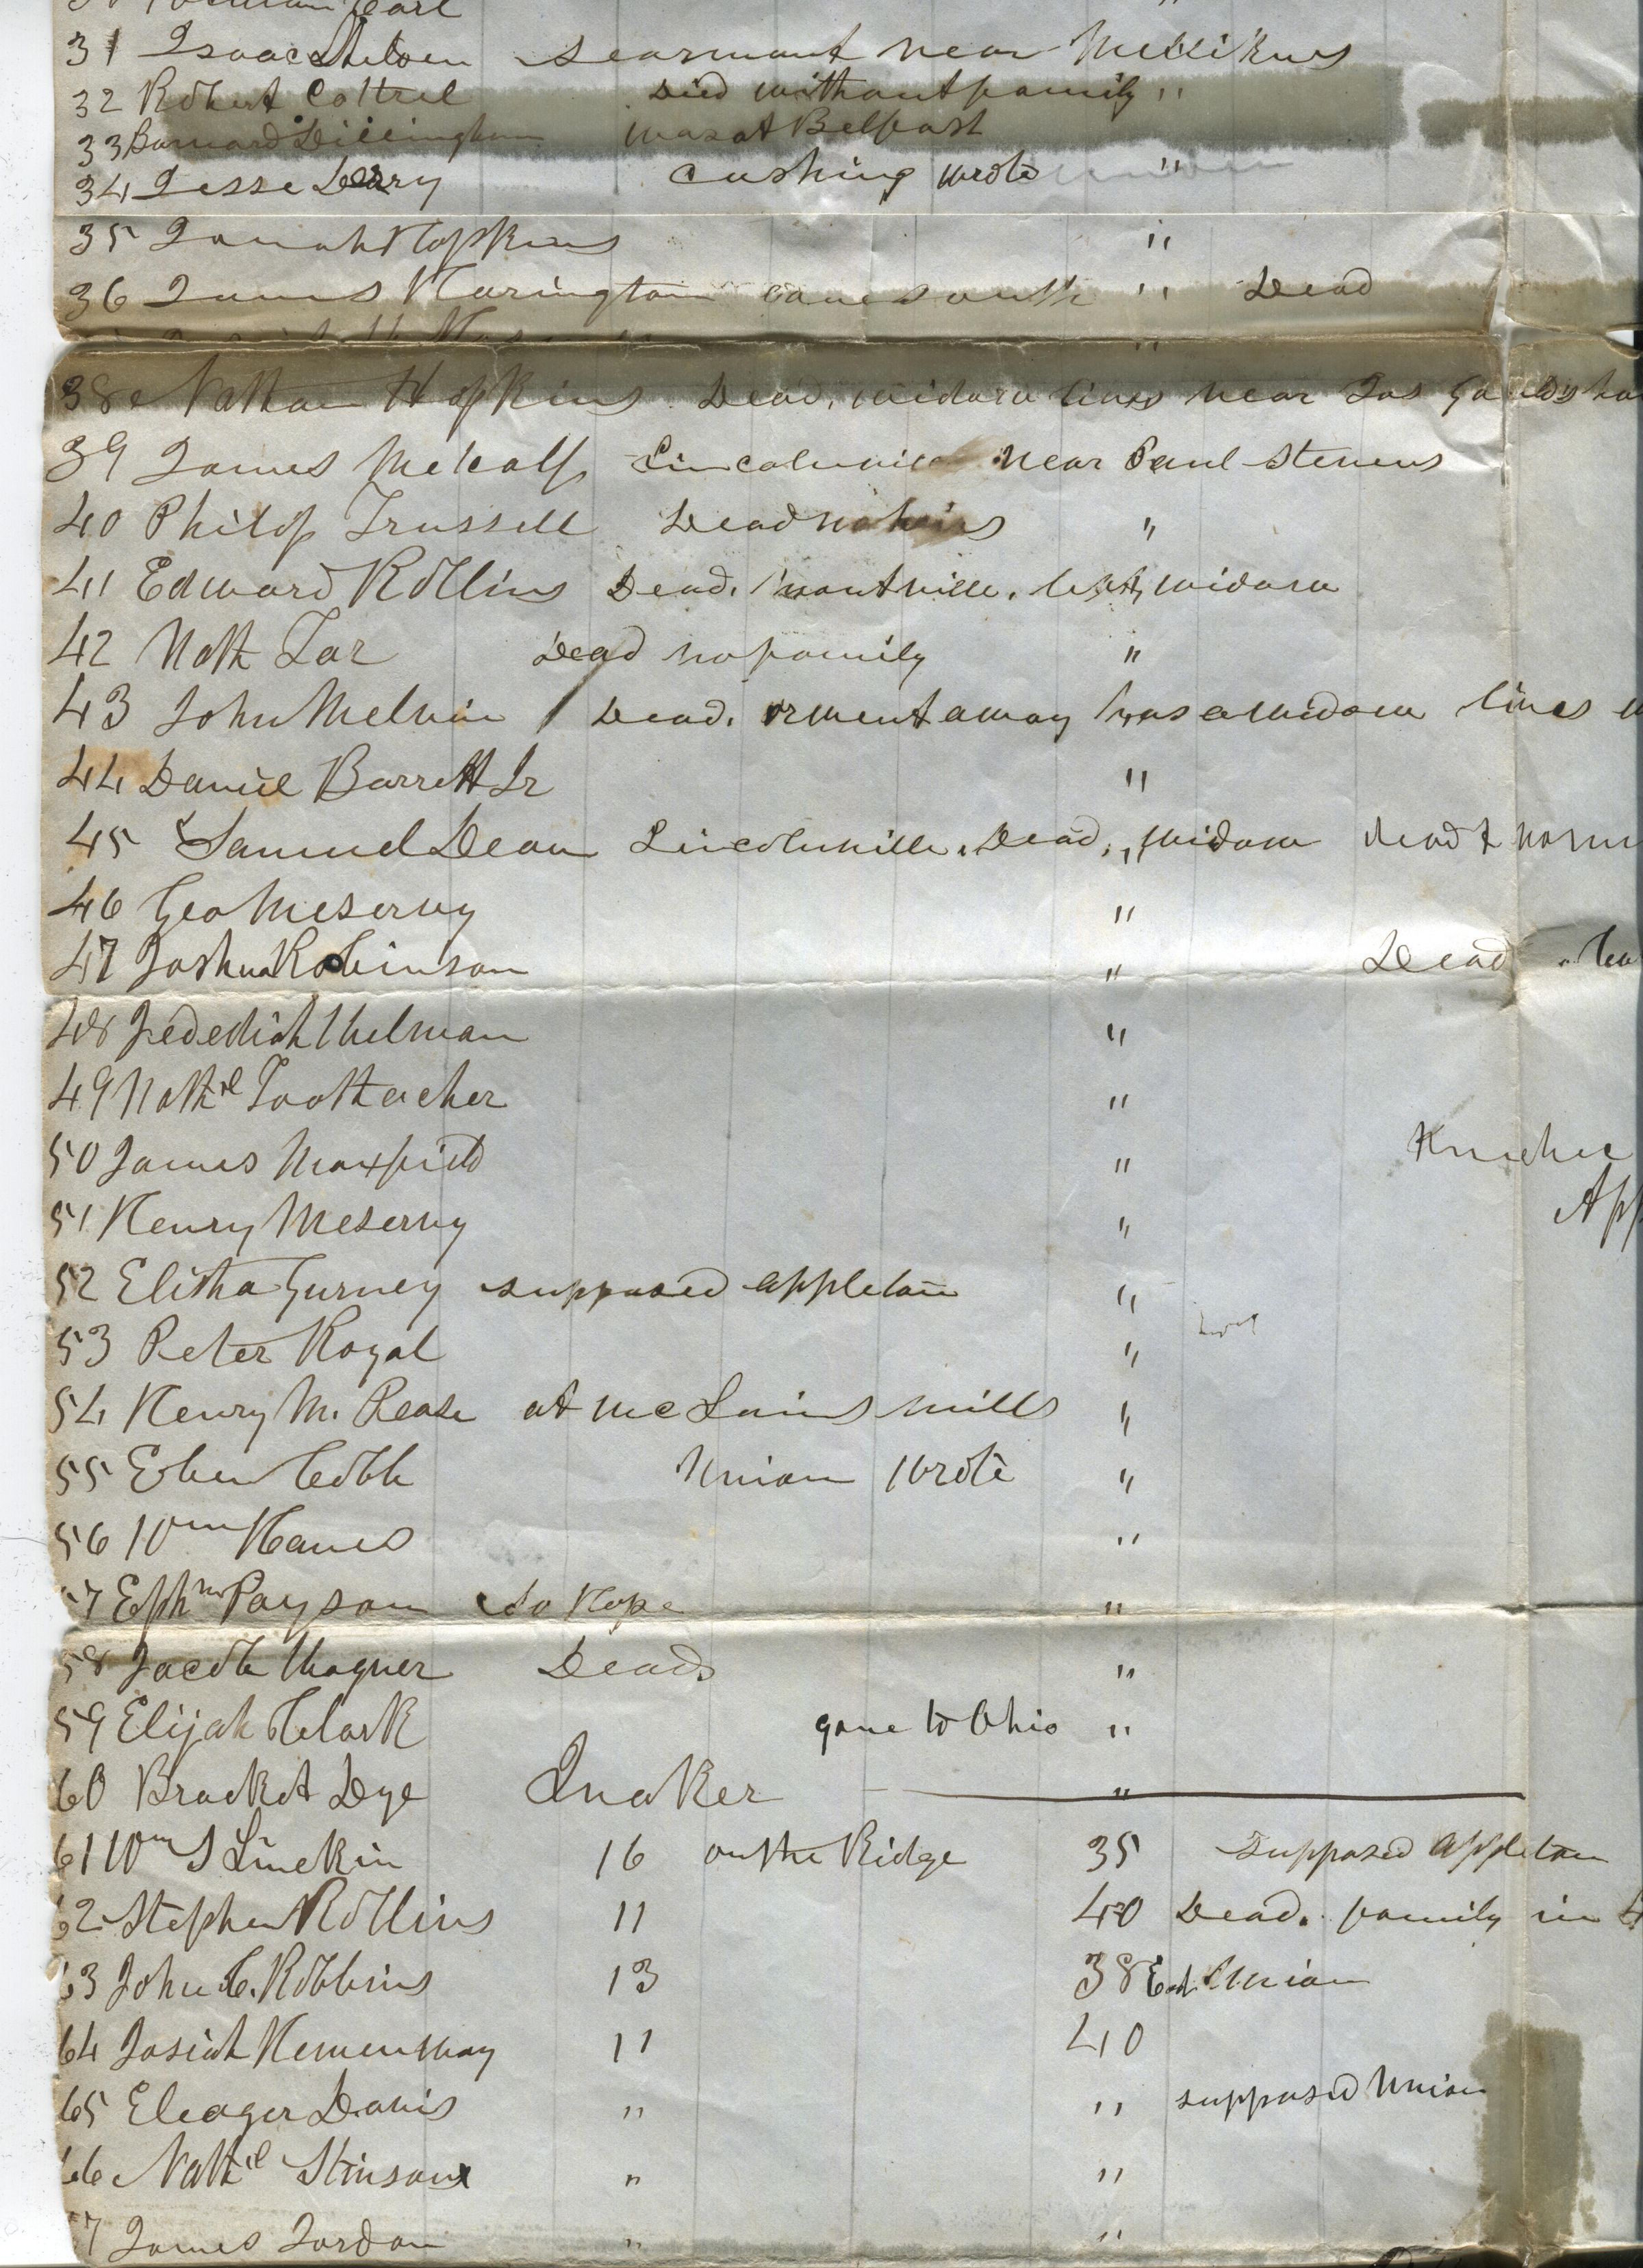 31 Isaac Shelden Searsmont near Millikens
32 Robert Cottrel Died without family "
33 Barnard Dillingham was at Belfast
34 Jesse Derry Cushing wrote "
35 Jonah Hopkins "
36 James Harington came south " Dead
"
38 Nathan Hopkins Dead, widow lives near Jas
39 James Metcalf Lincolnville near Paul Stevens
40 Philip Trussell Dead no heirs "
41 Edward Rollins Dead. Montville. left widow
42 Nath Tar Dead no family "
43 John Melvin Dead. or went away has a widow lives
44 Daniel Barrett Jr "
45 Samuel Dean Lincolnville. Dead. " widow dead &
46 Geo Meservy "
47 Joshua Robinson " Dead
48 Jedediah Ulmer "
49 Nathel Toothacher "
50 James Maxfield "
51 Henry Meservy "
App
52 Elisha Gurney supposed Appleton "
53 Peter Royal "
54 Henry M. Pease at McLains mills "
55 Eben Cobb Union wrote "
56 Wm Hanes "
57 Ephm Payson So Hope "
58 Jacob Wagner Dead "
59 Elijah Clark gone to Ohio "
60 Bracket Dye Quaker "
61 Wm S Linekin 16 on the Ridge 35 Supposed Appleton
62 Stephen Rollins 11 40 Dead. family in
63 John C. Robbins 13 38 Ed. Union
64 Josiah Hemenway 11 40
65 Eleazer Davis " " supposed Union
66 Nathel Stinson " "
7 James Jordan " "